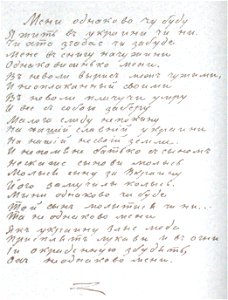 Мени однаково чи буду
Я жить въ украини чи ни.
Чи хто згадае чи забуде
Мене въ снигу на чужини
Однаковисинько мени.
Въ неволи вырисъ межъ чужыми,
И неоплаканый своими
Въ неволи плачучи умру
И все зъ собою заберу
Малого слиду непокину
На нашій славній украини
На нашій несвоій земли.
И непомьяне батько съ сыномъ
Нескаже сынови молысь
Молысь сыну за Украину
Його замучылы колысь.
Мени однаково чи буде
Той сынъ молытыся чи ни...
Та не однаково мени
Якъ украину злые люде
Присплять лукави и въ огни
Іи окраденую збудять,
Охъ неоднаково мени.